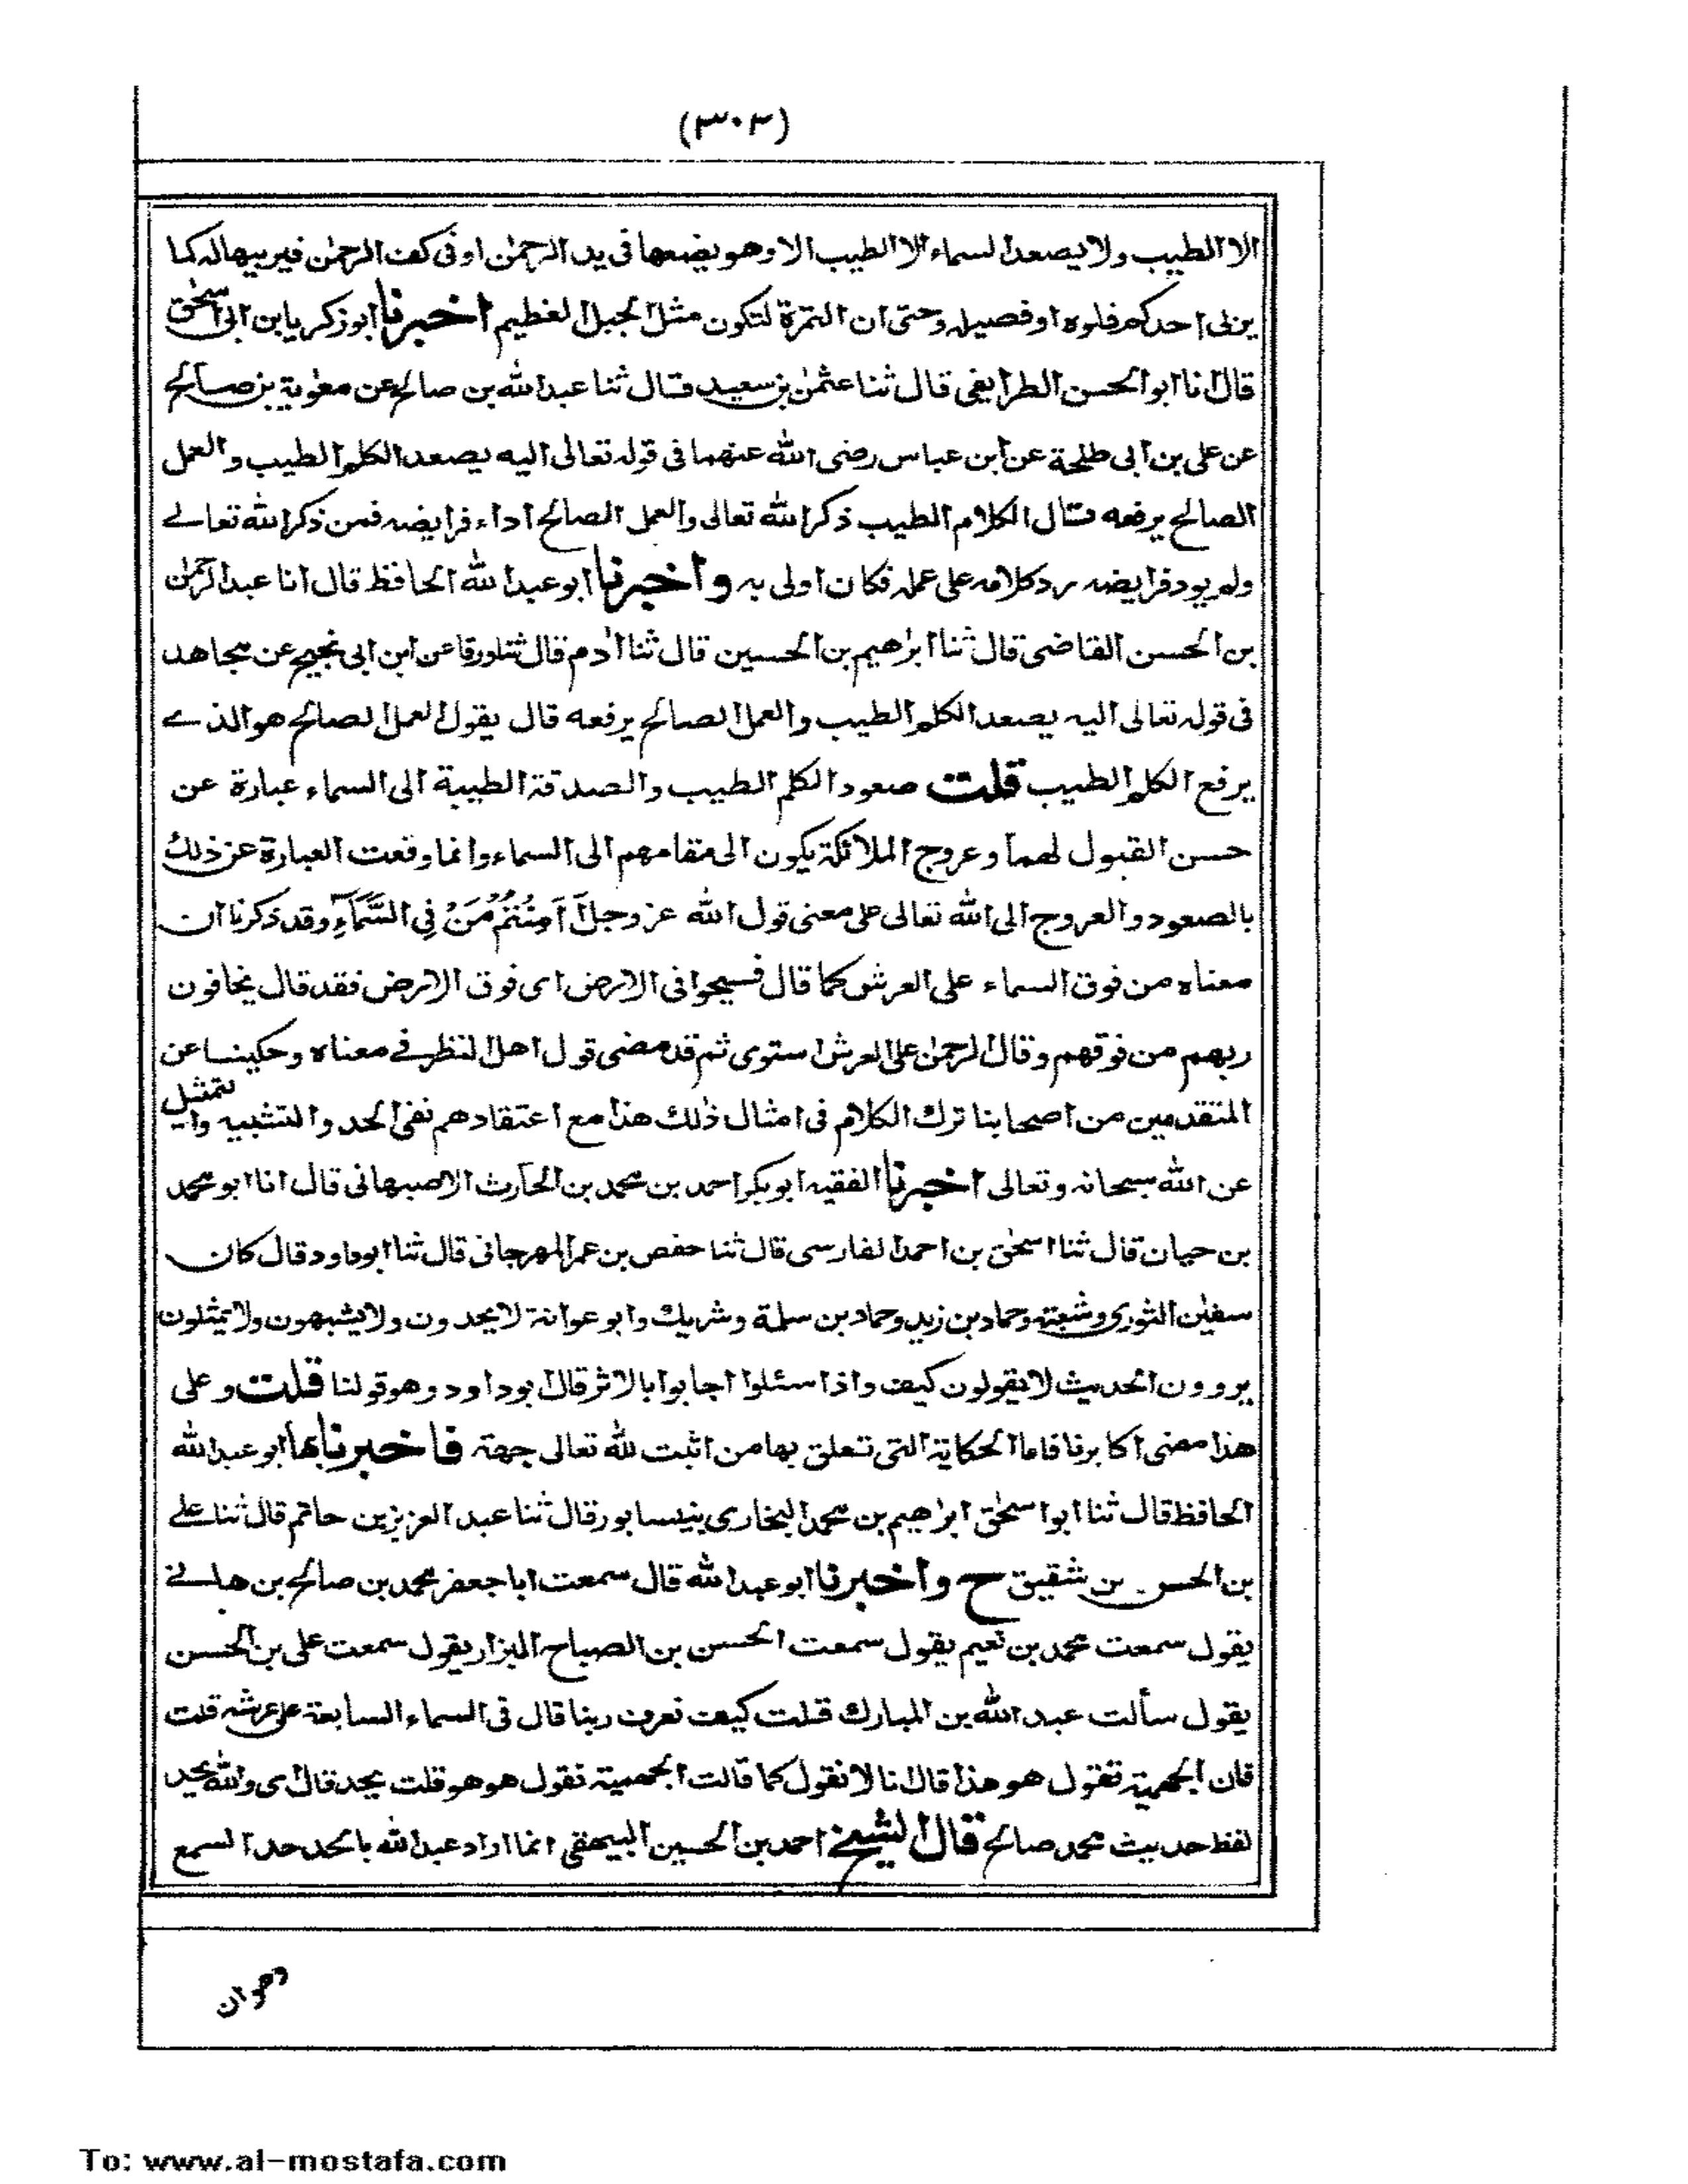 (٣٠٣)
الا الطيب ولا يصعد السماء الا الطيب الا وهو يضعها فى يد الرحمٰن او فى كف الرحمٰن فيربيها له كما
يربى احدكم فلوه او فصيله وحتى ان التمرة لتكون مثل الجبل العظيم اخبرنا ابو زكريا بن ابى اسحٰق
قال انا ابو الحسن الطرايفى قال ثنا عثمٰن بن سعيد قال ثنا عبد الله بن صالح عن معٰوية بن صالح
عن على بن ابى طلحة عن ابن عباس رضى الله عنهما فى قوله تعالى اليه يصعد الكلم الطيب والعمل
الصالح يرفعه قال الكلام الطيب ذكر الله تعالى والعمل الصالح اداء فرايضه فمن ذكر الله تعالے
ولم يود فرايضه رد كلامه على عمله فكان اولى به واخبرنا ابو عبد الله الحافظ قال انا عبد الرحمٰن
بن الحسن القاضى قال ثنا ابرٰهيم بن الحسين قال ثنا اٰدم قال ثنا ورقا عن ابن ابى نجيح عن مجاهد
فى قوله تعالى اليه يصعد الكلم الطيب والعمل الصالح يرفعه قال يقول العمل الصالح هو الذے
يرفع الكلم الطيب قلت صعود الكلم الطيب والصدقة الطيبة الى السماء عبارة عن
حسن القبول لهما وعروج الملائكة يكون الى مقامهم الى السماء وانما وقعت العبارة عن ذلك
بالصعود والعروج الى الله تعالى على معنى قول الله عز وجل ءَاَمِنْتُمْ مَنْ فِى السَّمَآءِ وقد ذكرنا ان
معناه من فوق السماء على العرش كما قال فسيحوا فى الارض اى فوق الارض فقد قال يخافون
ربهم من فوقهم وقال الرحمٰن على العرش استوى ثم قد مضى قول اهل النظر فے معناه وحكينا عن
المتقدمين من اصحابنا ترك الكلام فى امثال ذٰلك هذا مع اعتقادهم نفى الحد والتشبيه والتمثيل
عن الله سبحانه وتعالى اخبرنا الفقيه ابو بكر احمد بن محمد بن الحارث الاصبهانى قال انا ابو محمد
بن حيان قال ثنا اسحٰق بن احمد الفارسى قال ثنا حفص بن عمر المهرجانى قال ثنا ابو داود قال كان
سفيٰن الثورى وشعبة وحماد بن زيد وحماد بن سلمة وشريك وابو عوانة لا يحدون ولا يشبهون ولا يمثلون
يروون الحديث لا يقولون كيف واذا سئلوا اجابوا بالاثر قال ابو داود وهو قولنا قلت وعلى
هذا مضى اكابرنا فاما الحكاية التى تعلق بها من اثبت لله تعالى جهة فاخبرنا بها ابو عبد الله
الحافظ قال ثنا ابو اسحٰق ابرٰهيم بن محمد البخارى بنيسابور قال ثنا عبد العزيز بن حاتم قال ثنا علے
بن الحسن بن شقيق ح واخبرنا ابو عبد الله قال سمعت ابا جعفر محمد بن صالح بن هانے
يقول سمعت محمد بن نعيم يقول سمعت الحسن بن الصباح البزار يقول سمعت على بن الحسن
يقول سألت عبد الله بن المبارك قلت كيف نعرف ربنا قال فى السماء السابعة على عرشه قلت
فان الجهمية تقول هو هذا قال انا لا نقول كما قالت الجهمية نقول هو هو قلت بحد قال اى والله بحد
لفظ حديث محمد صالح قال الشيخ احمد بن الحسين البيهقى انما اراد عبد الله بالحد حد السمع
To: www.al-mostafa.com